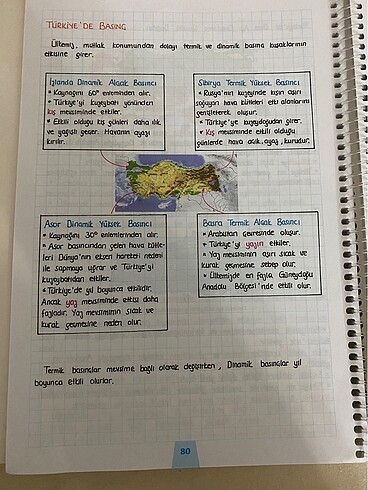 TÜRKİYE'DE BASINÇ
Ülkemiz, mutlak konumundan dolayı termik ve dinamik basınç kuşaklarının
etkisine girer.
İzlanda Dinamik Alçak Basıncı
* Kaynağını 60° enleminden alır.
* Türkiye'yi kuzeybatı yönünden
kış mevsiminde etkiler.
* Etkili olduğu kış günleri daha ılık
ve yağışlı geçer. Havanın ayazı
kırılır.
Sibirya Termik Yüksek Basıncı
* Rusya'nın kuzeyinde kışın aşırı
soğuyan hava kütleleri etki alanlarını
genişleterek oluşur.
* Türkiye'ye kuzeydoğudan girer.
* Kış mevsiminde etkili olduğu
günlerde hava açık, ayaz, kurudur.
Asor Dinamik Yüksek Basıncı
* Kaynağını 30° enlemlerinden alır.
* Asor basıncından gelen hava kütle-
leri Dünya'nın eksen hareketi nedeni
ile sapmaya uğrar ve Türkiye'yi
kuzeybatıdan etkiler.
* Türkiye'de yıl boyunca etkilidir.
Ancak yaz mevsiminde etkisi daha
fazladır. Yaz mevsiminin sıcak ve
kurak geçmesine neden olur.
Basra Termik Alçak Basıncı
* Arabistan çevresinde oluşur.
* Türkiye'yi yazın etkiler.
* Yaz mevsiminin aşırı sıcak ve
kurak geçmesine sebep olur.
* Ülkemizde en fazla Güneydoğu
Anadolu Bölgesi'nde etkili olur.
Termik basınçlar mevsime bağlı olarak değişirken, Dinamik basınçlar yıl
boyunca etkili olurlar.
80